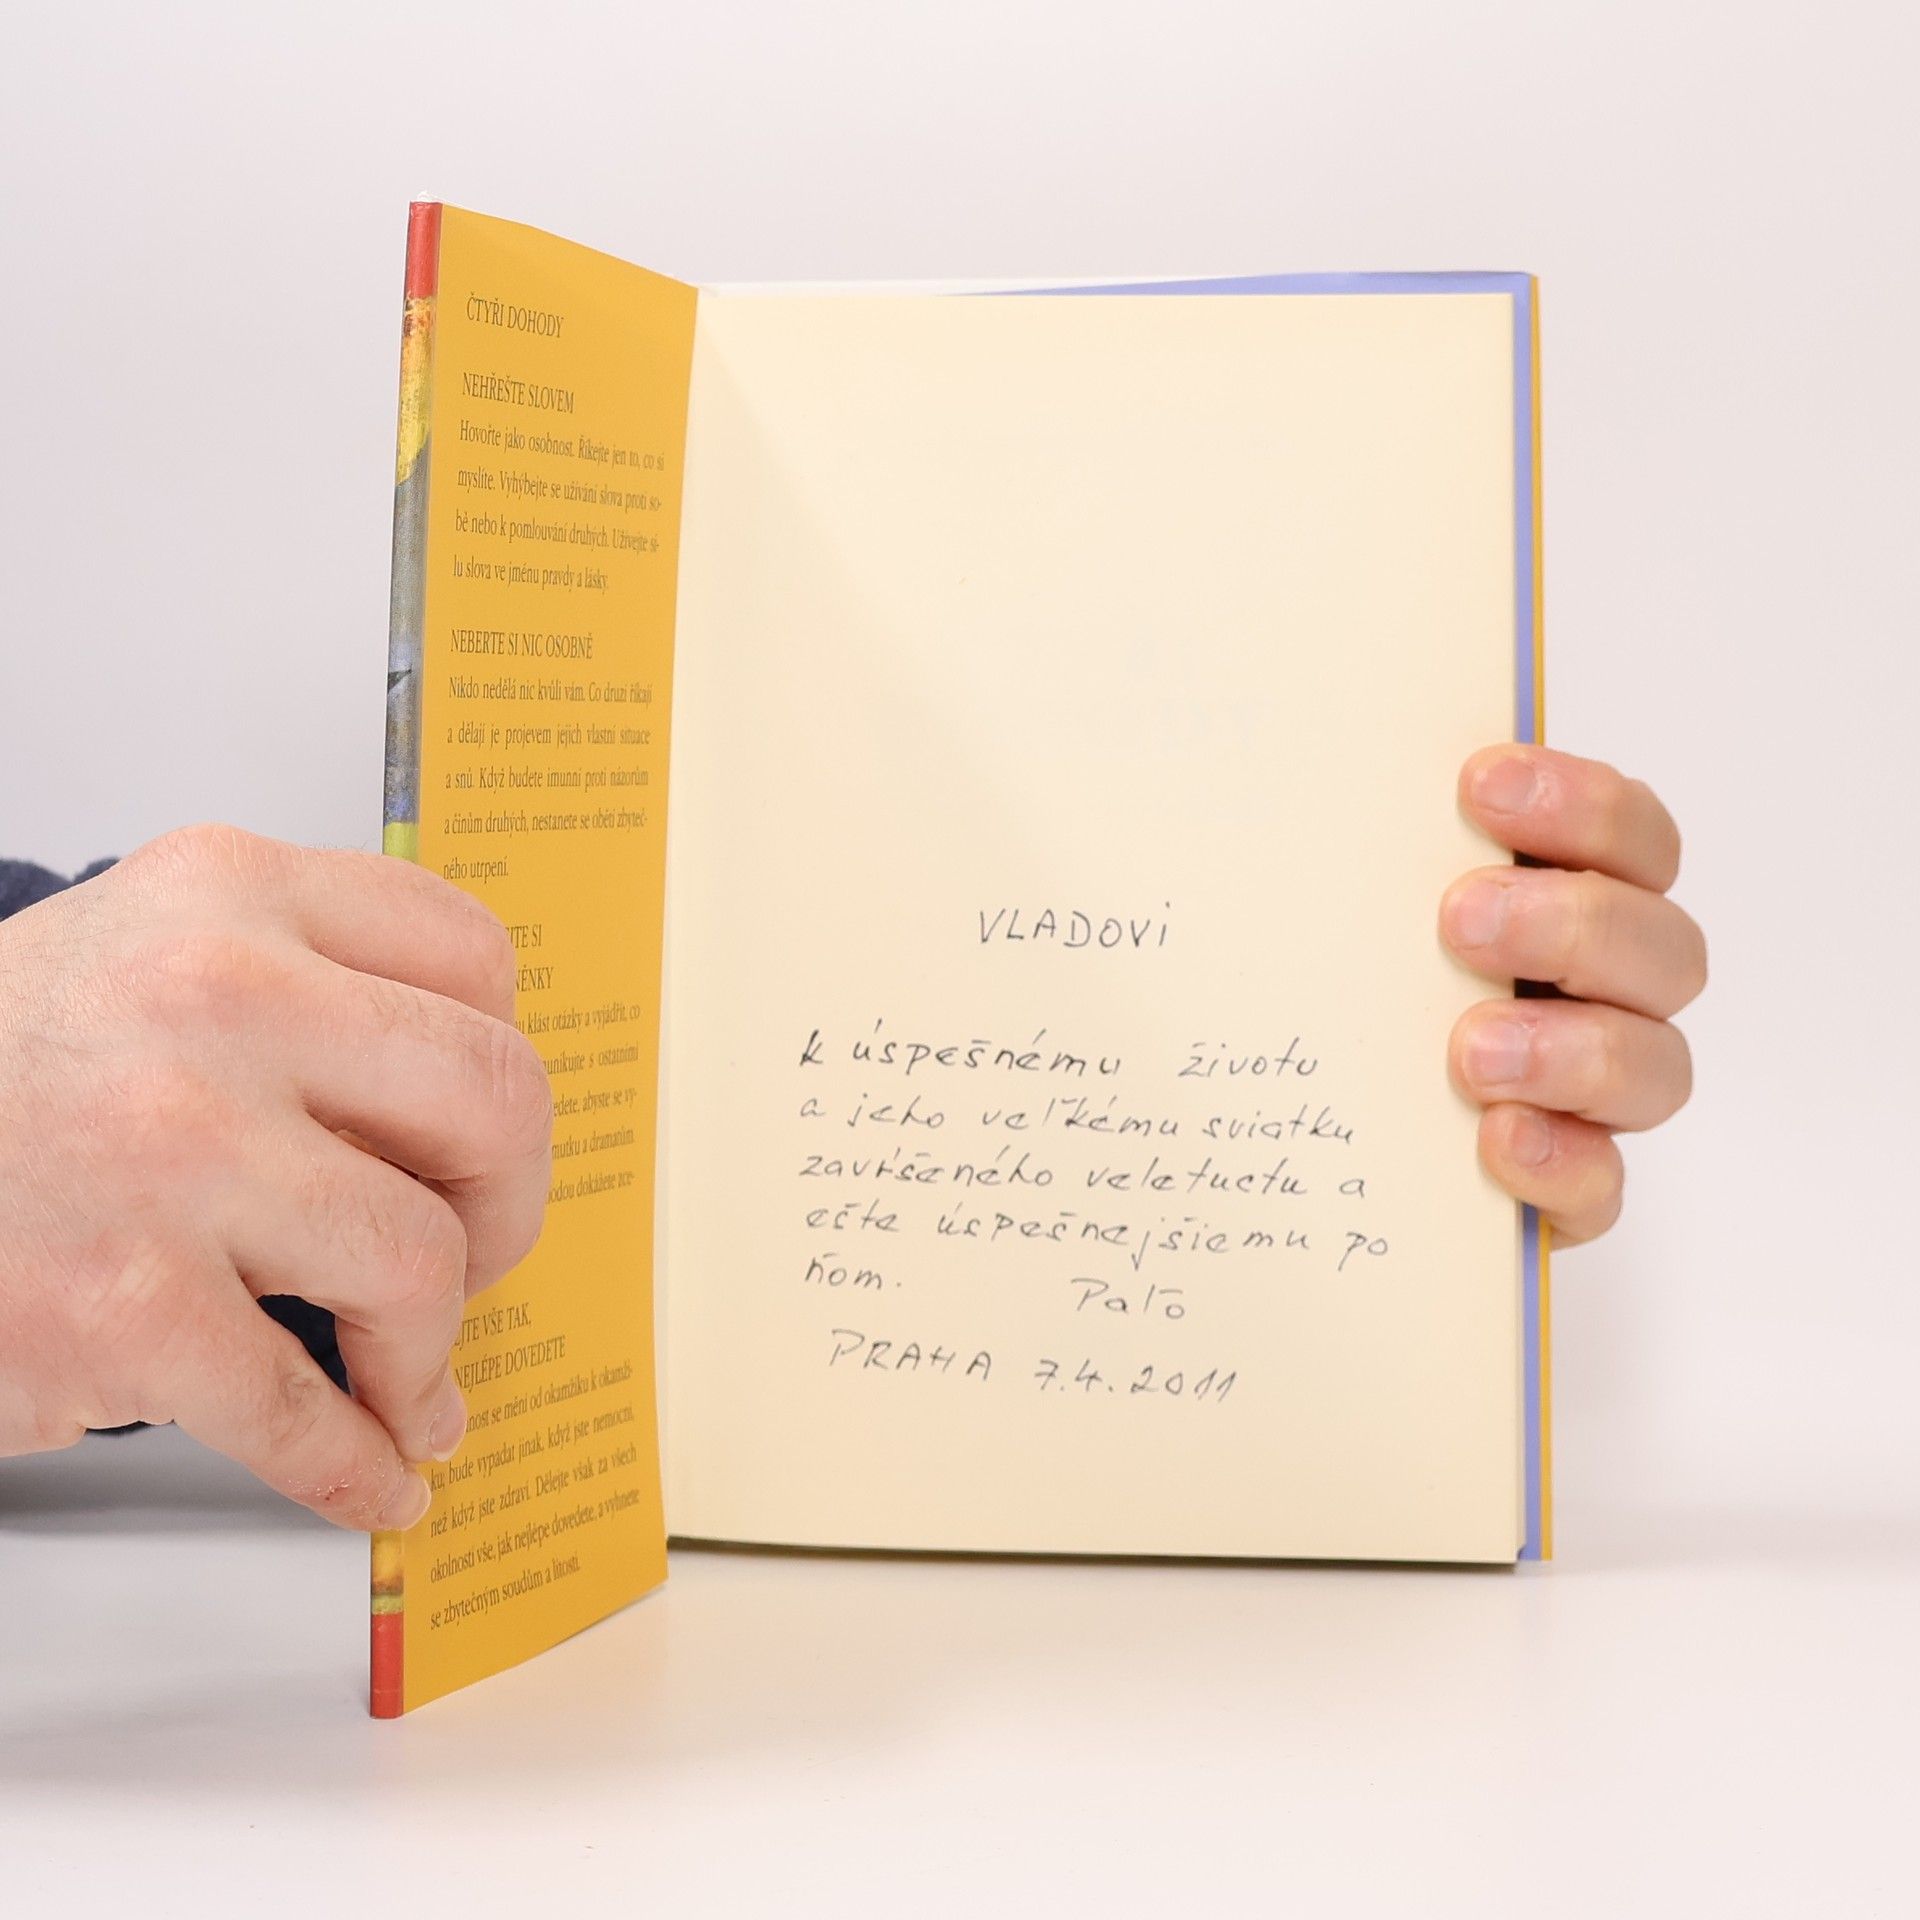 ČTYŘI DOHODY
NEHŘEŠTE SLOVEM
Hovořte jako osobnost. Říkejte jen to, co si
myslíte. Vyhýbejte se užívání slova proti so-
bě nebo k pomlouvání druhých. Užívejte sí-
lu slova ve jménu pravdy a lásky.
NEBERTE SI NIC OSOBNĚ
Nikdo nedělá nic kvůli vám. Co druzí říkají
a dělají je projevem jejich vlastní situace
a snů. Když budete imunní proti názorům
a činům druhých, nestanete se obětí zbyteč-
ného utrpení.
SI
NĚNKY
klást otázky a vyjádřit, co
unikujte s ostatními
edete, abyste se vy-
mutku a dramatům.
dokážete zce-
EJTE VŠE TAK,
NEJLÉPE DOVEDETE
nost se mění od okamžiku k okamži-
ku; bude vypadat jinak, když jste nemocní,
než když jste zdraví. Dělejte však za všech
okolností vše, jak nejlépe dovedete, a vyhnete
se zbytečným soudům a lítosti.
VLADOVI
k úspešnému životu
a jeho veľkému sviatku
zavŕšeného veletuctu a
ešte úspešnejšiemu po
ňom. Paľo
PRAHA 7.4.2011